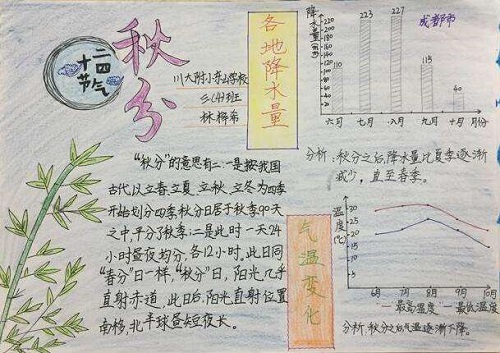 二十四
节气
秋分
川大附小东山学校
三(4)班
林梓希
各地降水量
降水量(mm)
成都市
110
223
227
115
40
六月 七月 八月 九月 十月 月份
分析：秋分之后，降水量比夏季逐渐
减少，直至春季。
"秋分"的意思有二：一是按我国
古代以立春、立夏、立秋、立冬为四季
开始划分四季，秋分日居于秋季90天
之中，平分了秋季；二是此时一天24
小时昼夜均分，各12小时，此日同
"春分"日一样，"秋分"日，阳光几乎
直射赤道，此日后，阳光直射位置
南移，北半球昼短夜长。
气温变化
温度(℃)
6月 7月 8月 9月 10月
最高温度 最低温度
分析：秋分之后气温逐渐下降。